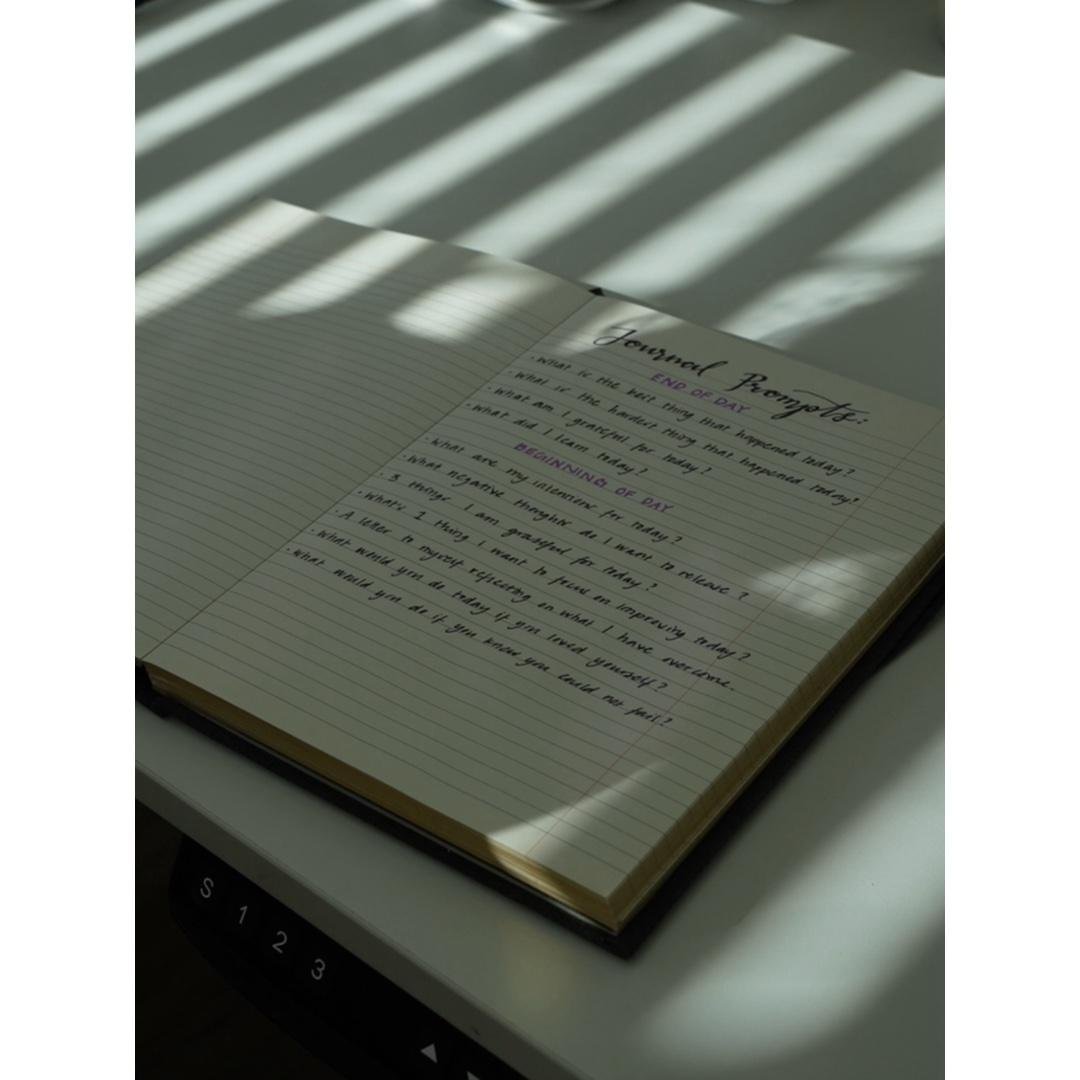 Journal Prompts:
END OF DAY
· What is the best thing that happened today?
· What is the hardest thing that happened today?
· What am I grateful for today?
· What did I learn today?
BEGINNING OF DAY
· What are my intentions for today?
· What negative thoughts do I want to release?
· 3 things I am grateful for today?
· What's 1 thing I want to focus on improving today?
· A letter to myself reflecting on what I have overcome.
· What would you do today if you loved yourself?
· What would you do if you knew you could not fail?
S 1 2 3